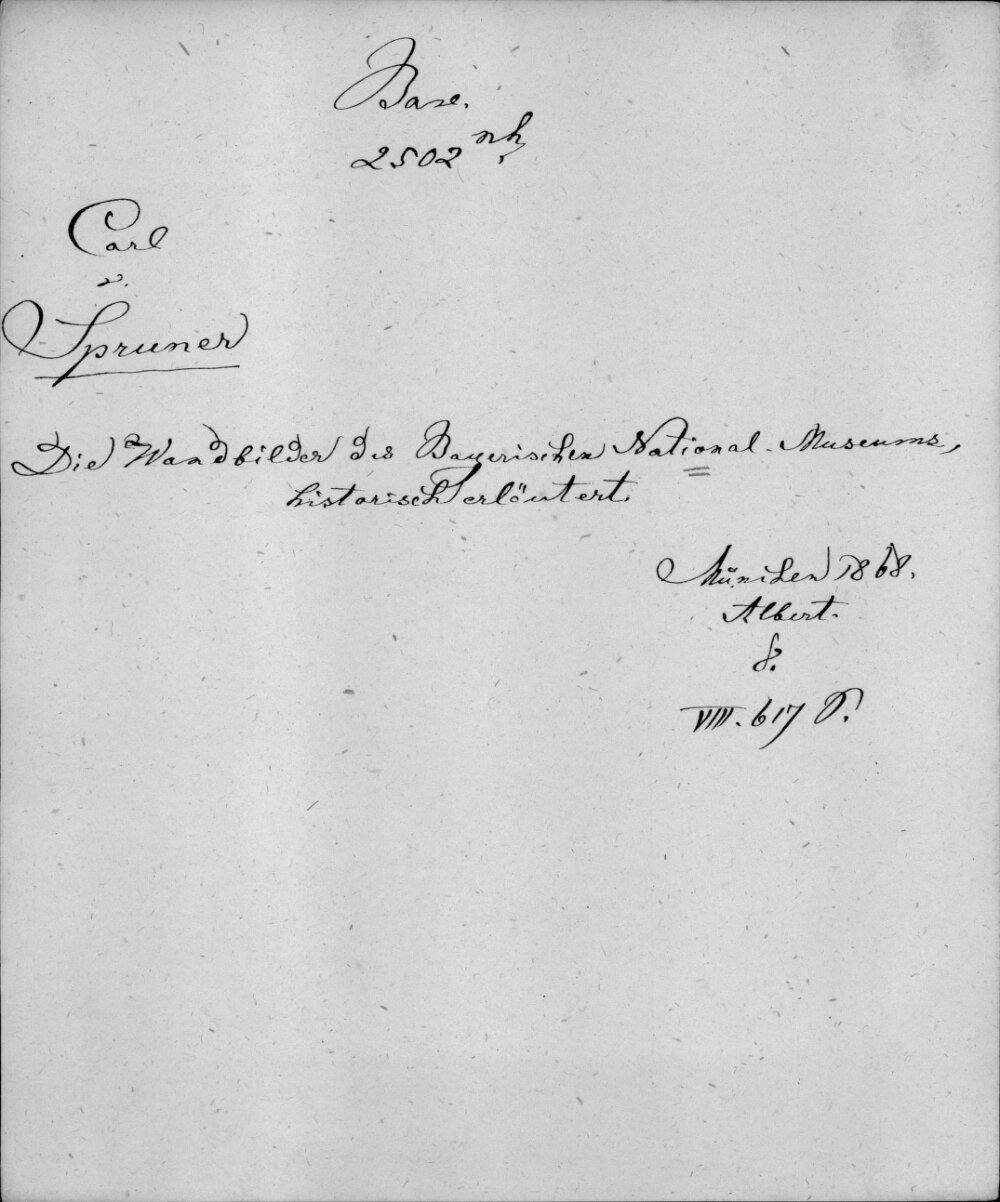 Bavar.
2502 nh,
Carl
v.
Spruner
Die Wandbilder des Bayerischen National-Museums,
historisch erläutert.
München 1868.
Albert.
8.
VIII. 617 S.